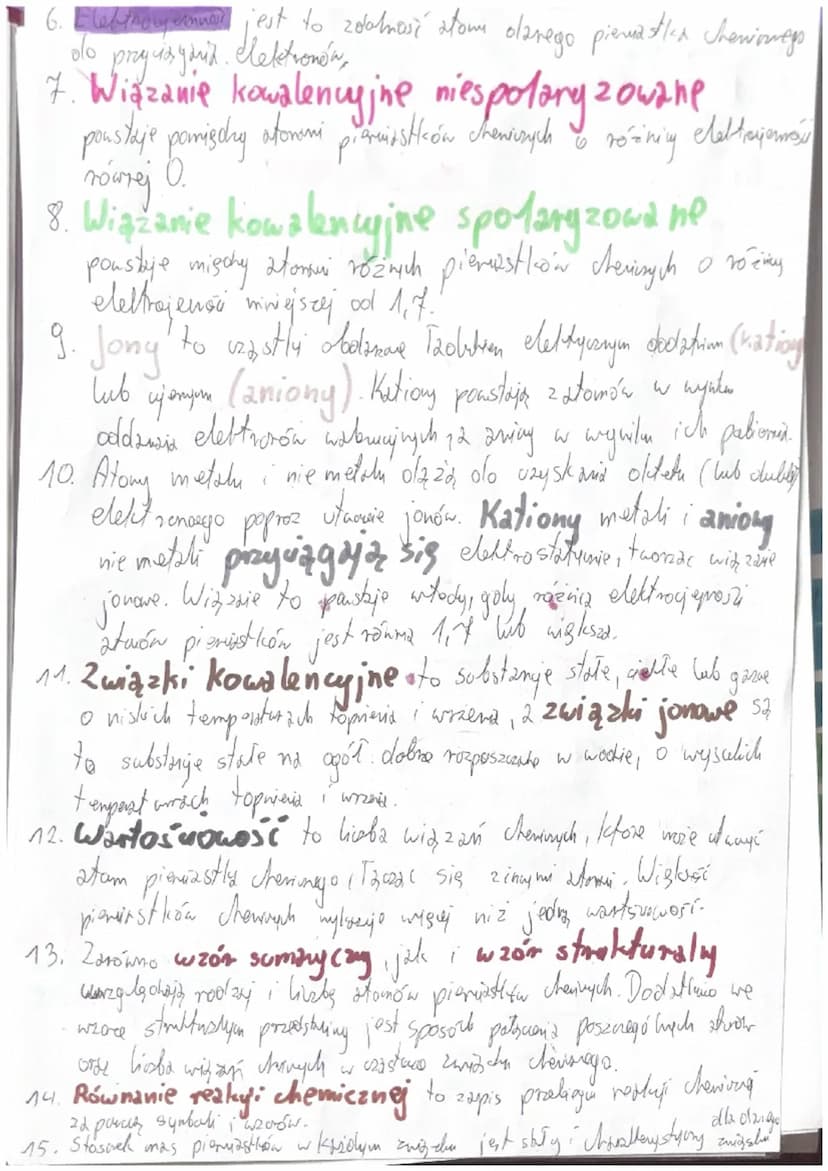 6. Elektroujemność jest to zdolność atomu danego pierwiastka chemicznego
do przyciągania elektronów.
7. Wiązanie kowalencyjne niespolaryzowane
powstaje pomiędzy atomami pierwiastków chemicznych o różnicy elektroujemności
równej 0.
8. Wiązanie kowalencyjne spolaryzowane
powstaje między atomami różnych pierwiastków chemicznych o różnicy
elektrojemności mniejszej od 1,7.
9. Jony to cząstki obdarzone ładunkiem elektrycznym dodatnim (kationy
lub ujemnym (aniony). Kationy powstają z atomów w wyniku
oddawania elektronów walencyjnych, za aniony w wyniku ich pobierania.
10. Atomy metalu i nie metalu dążą do uzyskania oktetu (lub dubletu)
elektronowego poprzez utworzenie jonów. Kationy metali i aniony
nie metali przyciągają się elektrostatycznie, tworząc wiązanie
jonowe. Wiązanie to powstaje wtedy, gdy różnica elektroujemności
atomów pierwiastków jest równa 1,7 lub większa.
11. Związki kowalencyjne to substancje stałe, ciekłe lub gazowe
o niskich temperaturach topnienia i wrzenia, a związki jonowe są
to substancje stałe na ogół dobrze rozpuszczalne w wodzie, o wysokich
temperaturach topnienia i wrzenia.
12. Wartościowość to liczba wiązań chemicznych, które może utworzyć
atom pierwiastka chemicznego, łącząc się z innymi atomami. Większość
pierwiastków chemicznych wykazuje więcej niż jedną wartościowość.
13. Zarówno wzór sumaryczny, jak i wzór strukturalny
uwzględniają rodzaj i liczbę atomów pierwiastków chemicznych. Dodatkowo we
wzorze strukturalnym przedstawiony jest sposób połączenia poszczególnych atomów
oraz liczba wiązań chemicznych w cząsteczce związku chemicznego.
14. Równanie reakcji chemicznej to zapis przebiegu reakcji chemicznej
za pomocą symboli i wzorów.
15. Stosunek mas pierwiastków w każdym związku jest stały i charakterystyczny dla danego związku